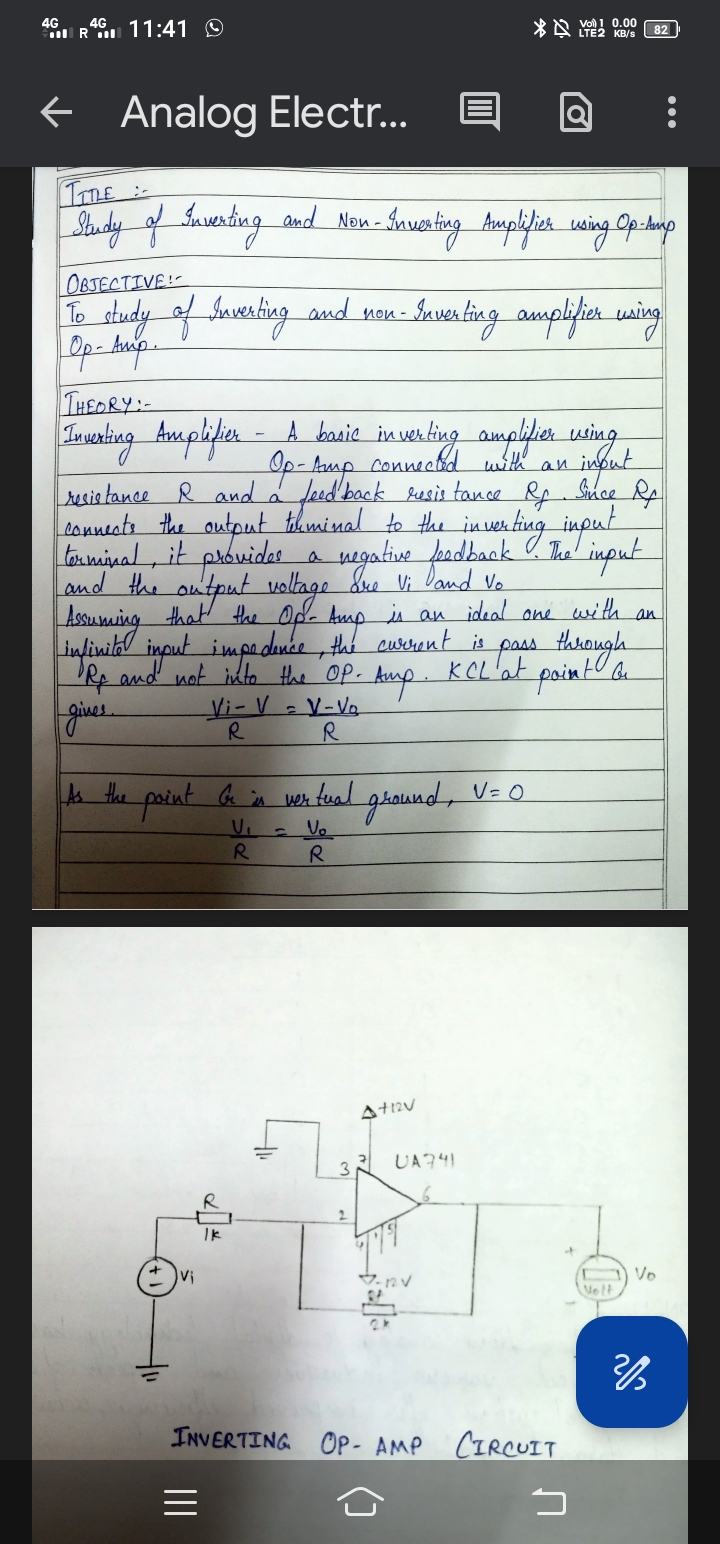 4G R 4G 11:41 Vo) 1 LTE2 0.00 KB/s 82
Analog Electr...
TITLE :-
Study of Inverting and Non-Inverting Amplifier using Op-Amp
OBJECTIVE:-
To study of Inverting and non-Inverting amplifier using
Op-Amp.
THEORY:-
Inverting Amplifier - A basic inverting amplifier using
Op-Amp connected with an input
resistance R and a feedback resistance Rf. Since Rf
connects the output terminal to the inverting input
terminal, it provides a negative feedback. The input
and the output voltage are Vi and Vo
Assuming that the Op-Amp is an ideal one with an
infinite input impedence, the current is pass through
Rf and not into the OP-Amp. KCL at point G
gives. Vi-V = V-Vo
R R
As the point G is vertual ground, V=0
Vi = Vo
R R
+12V
3 7 UA741
6
R
1k
2
4 1 5
Vi
-12V
Rf
2k
+
Volt
Vo
-
INVERTING OP-AMP CIRCUIT